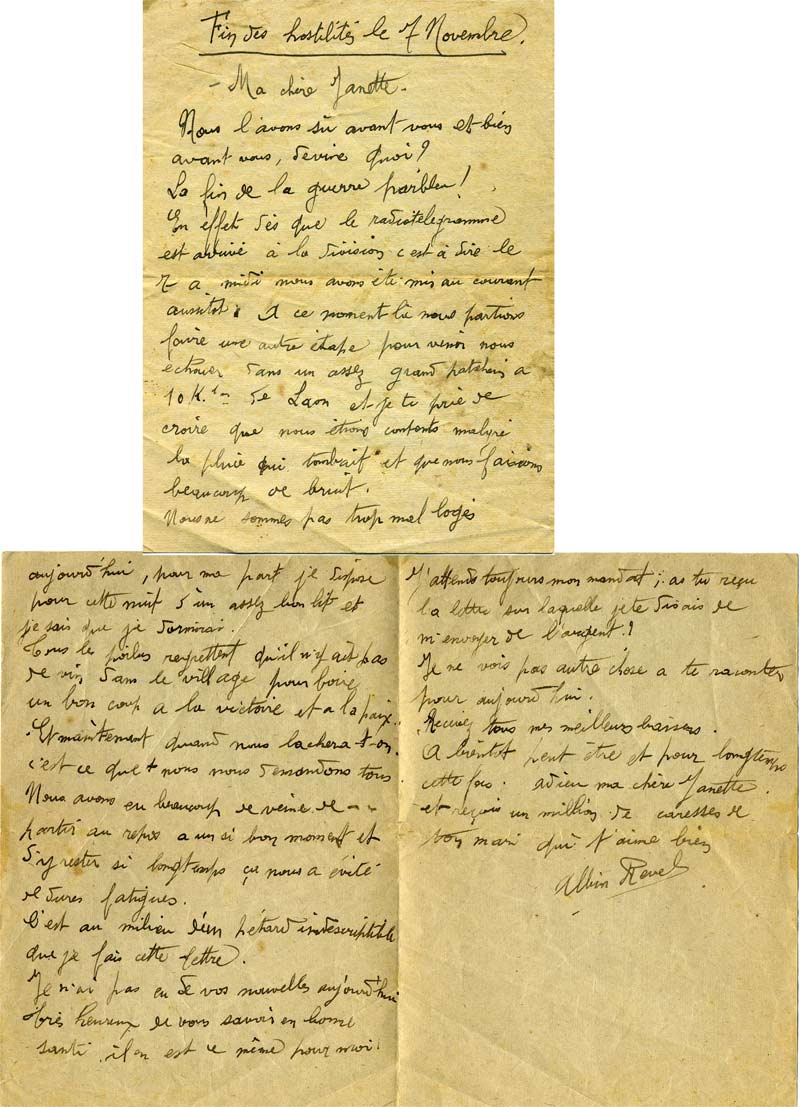 Fin des hostilités le 7 Novembre.
- Ma chère Janette -
Nous l'avons sû avant vous et bien
avant vous, devine quoi?
La fin de la guerre parbleu!
En effet dès que le radiotelegramme
est arrivé à la division c'est à dire le
7 a midi nous avons été mis au courant
aussitôt. A ce moment là nous partions
faire une autre étape pour venir nous
echouer dans un assez grand patelin a
10 K.tm de Laon et je te prie de
croire que nous étions contents malgré
la pluie qui tombait et que nous faisions
beaucoup de bruit.
Nous ne sommes pas trop mal logés
aujourd'hui, pour ma part je dispose
pour cette nuit d'un assez bon lit et
je sais que je dormirai.
Tous les poilus regrettent qu'il n'y ait pas
de vin dans le village pour boire
un bon coup a la victoire et a la paix.
Et maintement quand nous lachera-t-on
c'est ce que nous nous demandons tous
Nous avons eu beaucoup de veine de --
partir au repos a un si bon moment et
d'y rester si longtemps ça nous a évité
de dures fatigues.
C'est au milieu d'un pétard indescriptible
que je fais cette lettre.
Je n'ai pas eu de vos nouvelles aujourd'hui
très heureux de vous savoir en bonne
santé il en est de même pour moi!
J'attends toujours mon mandat; as tu reçu
la lettre sur laquelle je te disais de
m'envoyer de l'argent.?
Je ne vois pas autre chose a te raconter
pour aujourd'hui.
Recevez tous mes meilleurs baisers.
A bientôt peut être et pour longtemps
cette fois. adieu ma chère Janette
et reçois un million de caresses de
ton mari qui t'aime bien
Albin Revel